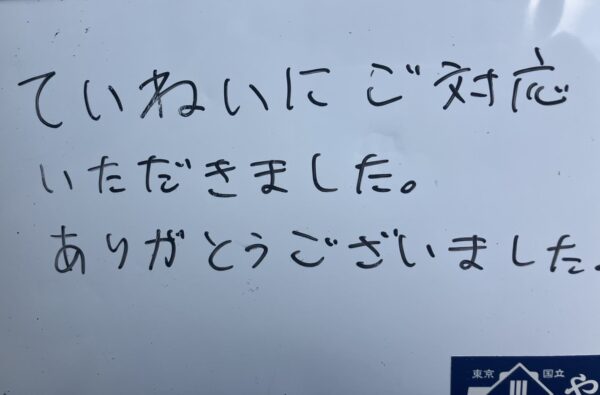 ていねいにご対応
いただきました。
ありがとうございました.
東京 国立
や